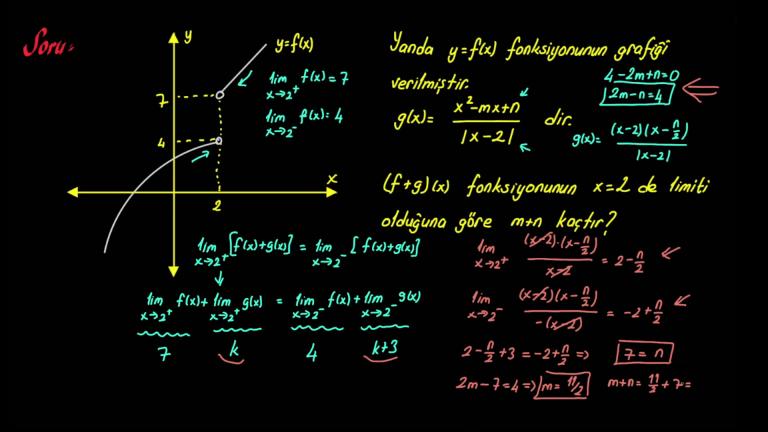 Soru:
Yanda y=f(x) fonksiyonunun grafiği
verilmiştir.
g(x)= x²-mx+n / |x-2| dir.
4-2m+n=0
2m-n=4
g(x)= (x-2)(x-n/2) / |x-2|
(f+g)(x) fonksiyonunun x=2 de limiti
olduğuna göre m+n kaçtır?
y
y=f(x)
7
4
2
x
lim x→2⁺ f(x)=7
lim x→2⁻ f(x)=4
lim x→2⁺ [f(x)+g(x)] = lim x→2⁻ [f(x)+g(x)]
lim x→2⁺ f(x) + lim x→2⁺ g(x) = lim x→2⁻ f(x) + lim x→2⁻ g(x)
7 k 4 k+3
lim x→2⁺ (x-2).(x-n/2) / x-2 = 2-n/2
lim x→2⁻ (x-2)(x-n/2) / -(x-2) = -2+n/2
2-n/2+3=-2+n/2 => 7=n
2m-7=4 => m=11/2 m+n=11/2+7=